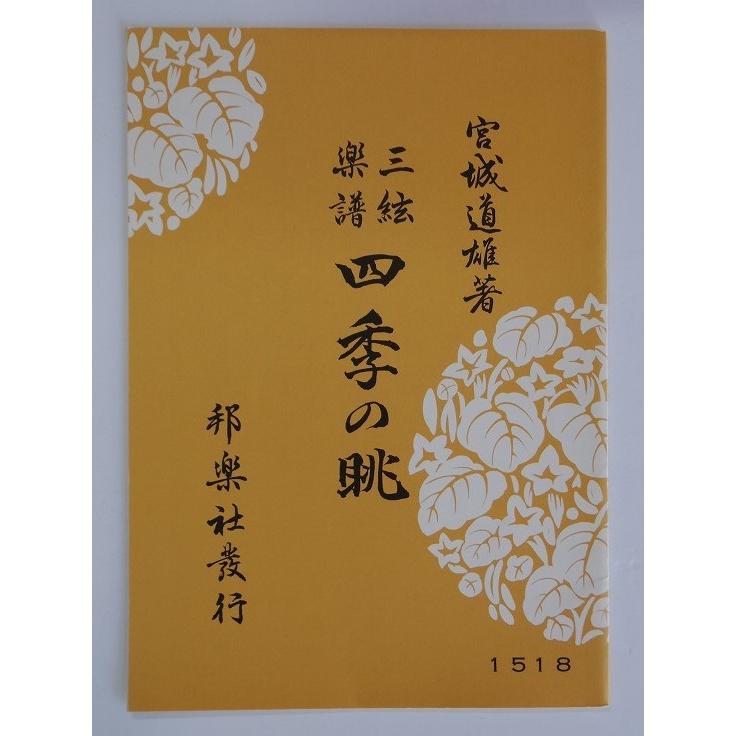 宮城道雄著
三絃
楽譜
四季の眺
邦楽社發行
1518